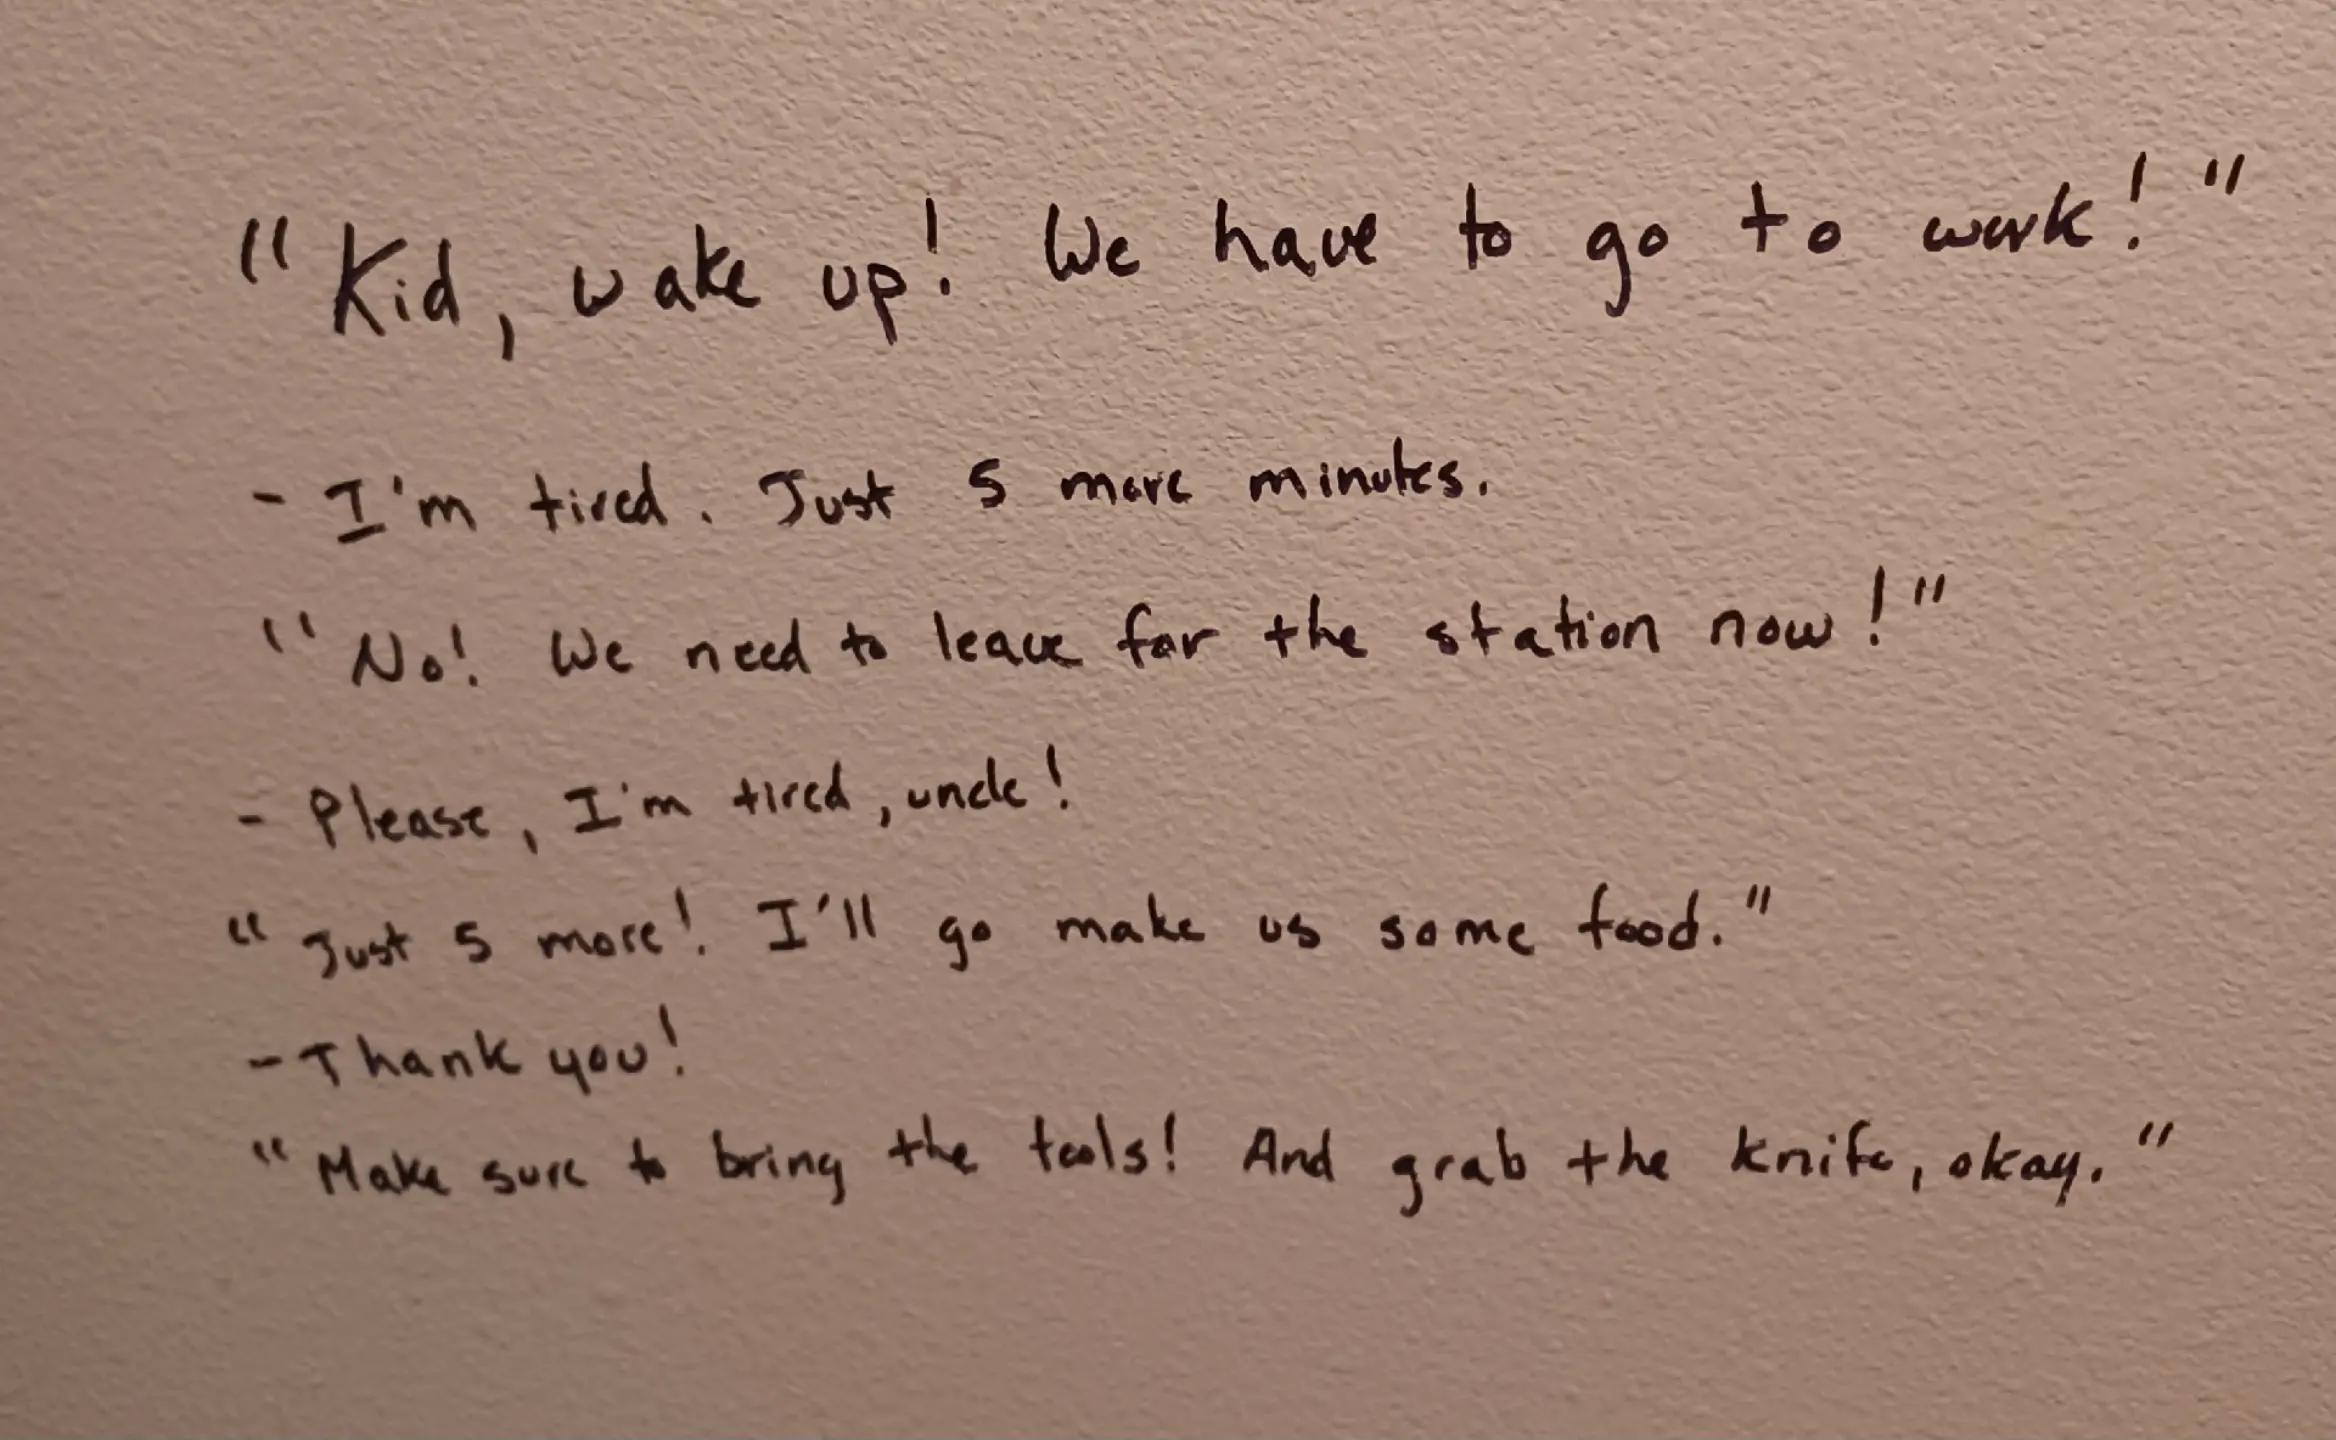 "Kid, wake up! We have to go to work!"
- I'm tired. Just 5 more minutes.
"No! We need to leave for the station now!"
- Please, I'm tired, uncle!
"Just 5 more! I'll go make us some food."
- Thank you!
"Make sure to bring the tools! And grab the knife, okay."